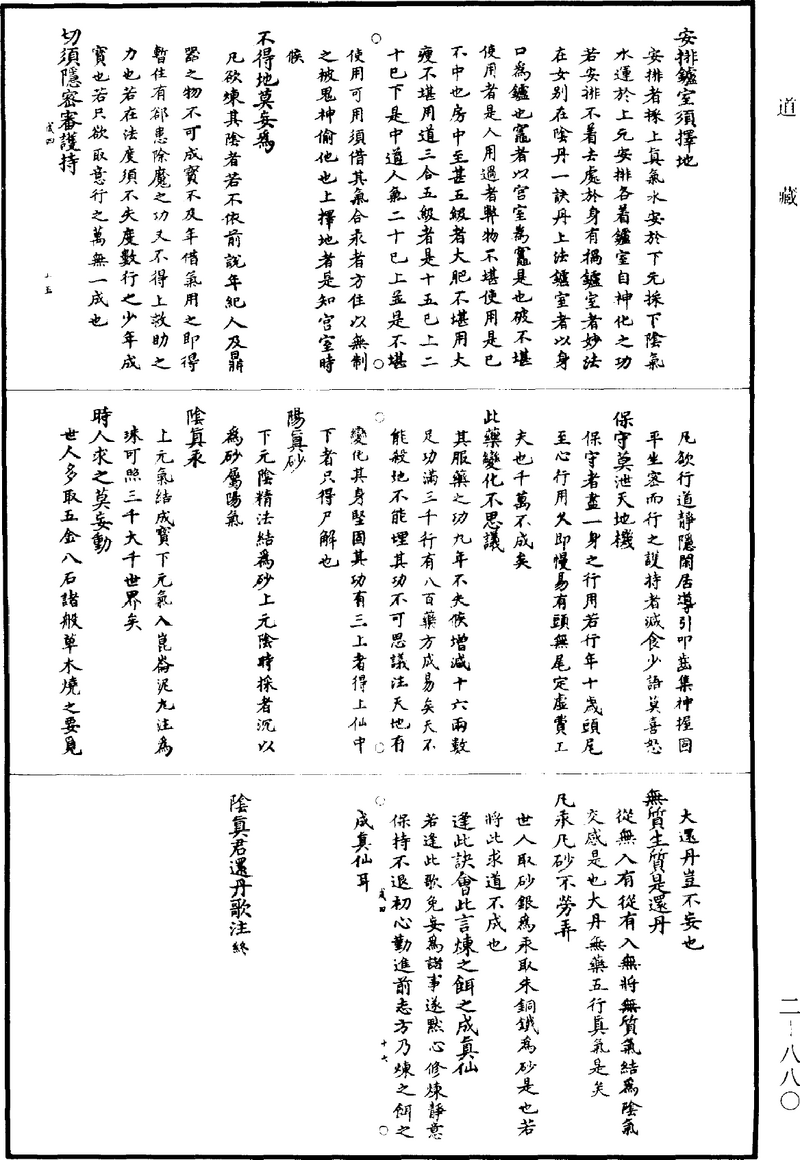 道藏
安排鑪室須擇地
安排者採上真氣水安於下元採下陰氣
水運於上元安排各着鑪室自神化之功
若安排不着去處於身有禍鑪室者妙法
在女別在陰丹一訣丹上法鑪室者以身
口爲鑪也竈者以宮室爲竈是也破不堪
使用者是人用過者弊物不堪使用是已
不中也房中至甚五級者大肥不堪用大
瘦不堪用道三合五級者是十五已上二
十已下是中道人氣二十已上並是不堪
使用可用須借其氣合汞者方住以無制
之被鬼神偷他也上擇地者是知宮室時
候
不得地莫妄爲
凡欲煉其陰者若不依前說年紀人及鼎
器之物不可成寶不及年借氣用之即得
暫住有却患除魔之功又不得上救助之
力也若在法度須不失度數行之少年成
寶也若只欲取意行之萬無一成也
切須隱密審護持
成四
十五
凡欲行道靜隱閑居導引叩齒集神握固
平生容而行之護持者減食少語莫喜怒
保守莫泄天地機
保守者盡一身之行用若行年十歲頭尾
至心行用久即慢易有頭無尾定虛費工
夫也千萬不成矣
此藥變化不思議
其服藥之功九年不失候增減十六兩數
足功滿三千行有八百藥方成易矣天不
能殺地不能埋其功不可思議注天地有
變化其身堅固其功有三上者得上仙中
下者只得尸解也
陽真砂
下元陰精法結爲砂上元陰時採者沉以
爲砂屬陽氣
陰真汞
上元氣結成寶下元氣入崑崙泥丸注爲
珠可照三千大千世界矣
時人求之莫妄動
世人多取五金八石諸般草木燒之要覓
大還丹豈不妄也
無質生質是還丹
從無入有從有入無將無質氣結爲陰氣
交感是也大丹無藥五行真氣是矣
凡汞凡砂不勞弄
世人取砂銀爲汞取朱銅鐵爲砂是也若
將此求道不成也
逢此訣會此言煉之餌之成真仙
若逢此歌免妄爲諸事遂默心修煉靜意
成四
十七
保持不退初心勤進前志方乃煉之餌之
成真仙耳
陰真君還丹歌注終
二一八八〇